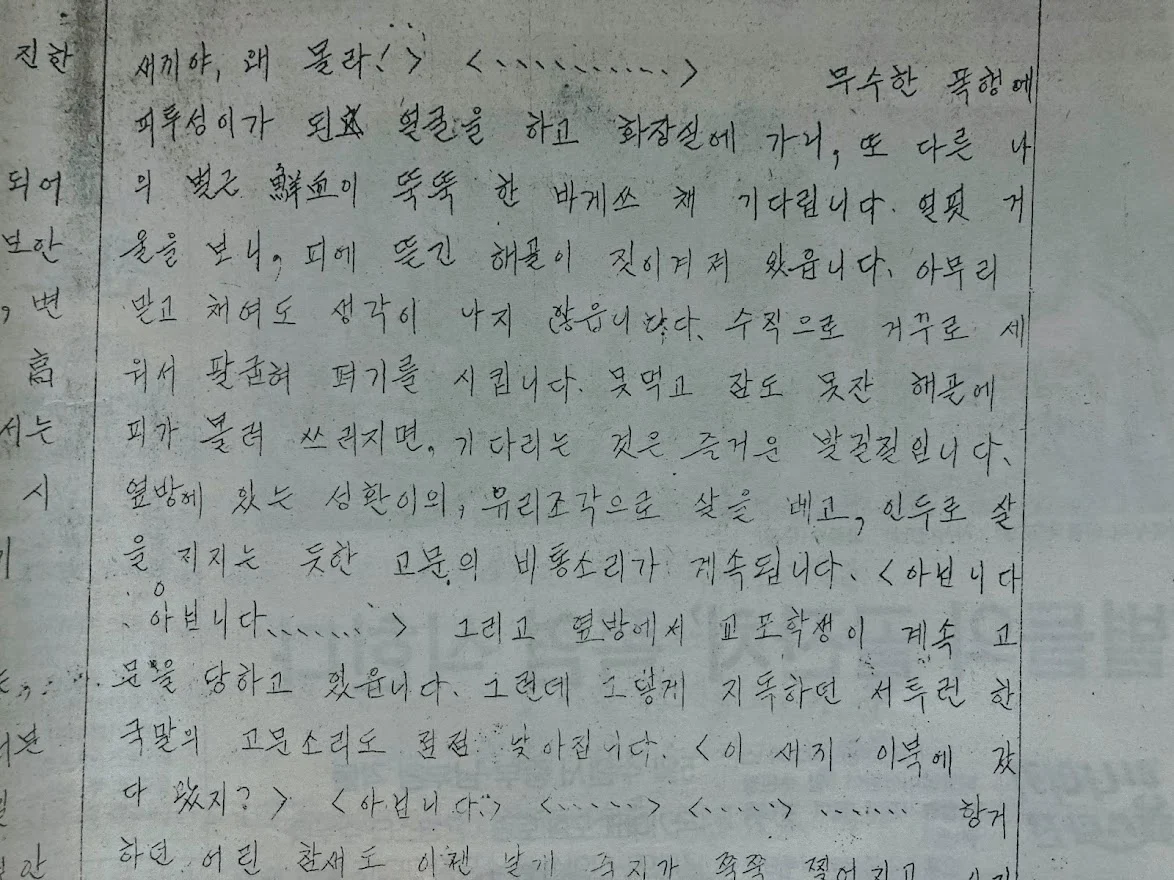 진한
되어
보안
, 변
高
서는
시
새끼야, 왜 몰라!> <..........> 무수한 폭행에
피투성이가 된 얼굴을 하고 화장실에 가니, 또 다른 나
의 벌근 鮮血이 뚝뚝 한 바게쓰 채 기다립니다. 얼핏 거
울을 보니, 피에 뜯긴 해골이 짓이겨져 왔읍니다. 아무리
맞고 채여도 생각이 나지 않읍니다. 수직으로 거꾸로 세
워서 팔굽혀 펴기를 시킵니다. 못먹고 잠도 못잔 해골에
피가 몰려 쓰러지면, 기다리는 것은 즐거운 발길질입니다.
옆방에 있는 성환이의, 유리조각으로 살을 베고, 인두로 살
을 지지는 듯한 고문의 비통소리가 계속됩니다. <아닙니다
아닙니다.......> 그리고 옆방에서 교포학생이 계속 고
문을 당하고 있읍니다. 그런데 그렇게 지독하던 서투런 한
국말의 고문소리도 점점 낮아집니다. <이 새끼 이북에 갔
다 왔지?> <아닙니다.> <.....> <.....> ....... 항거
하던 어린 참새도 이젠 날개 죽지가 쭉쭉 찢어지고